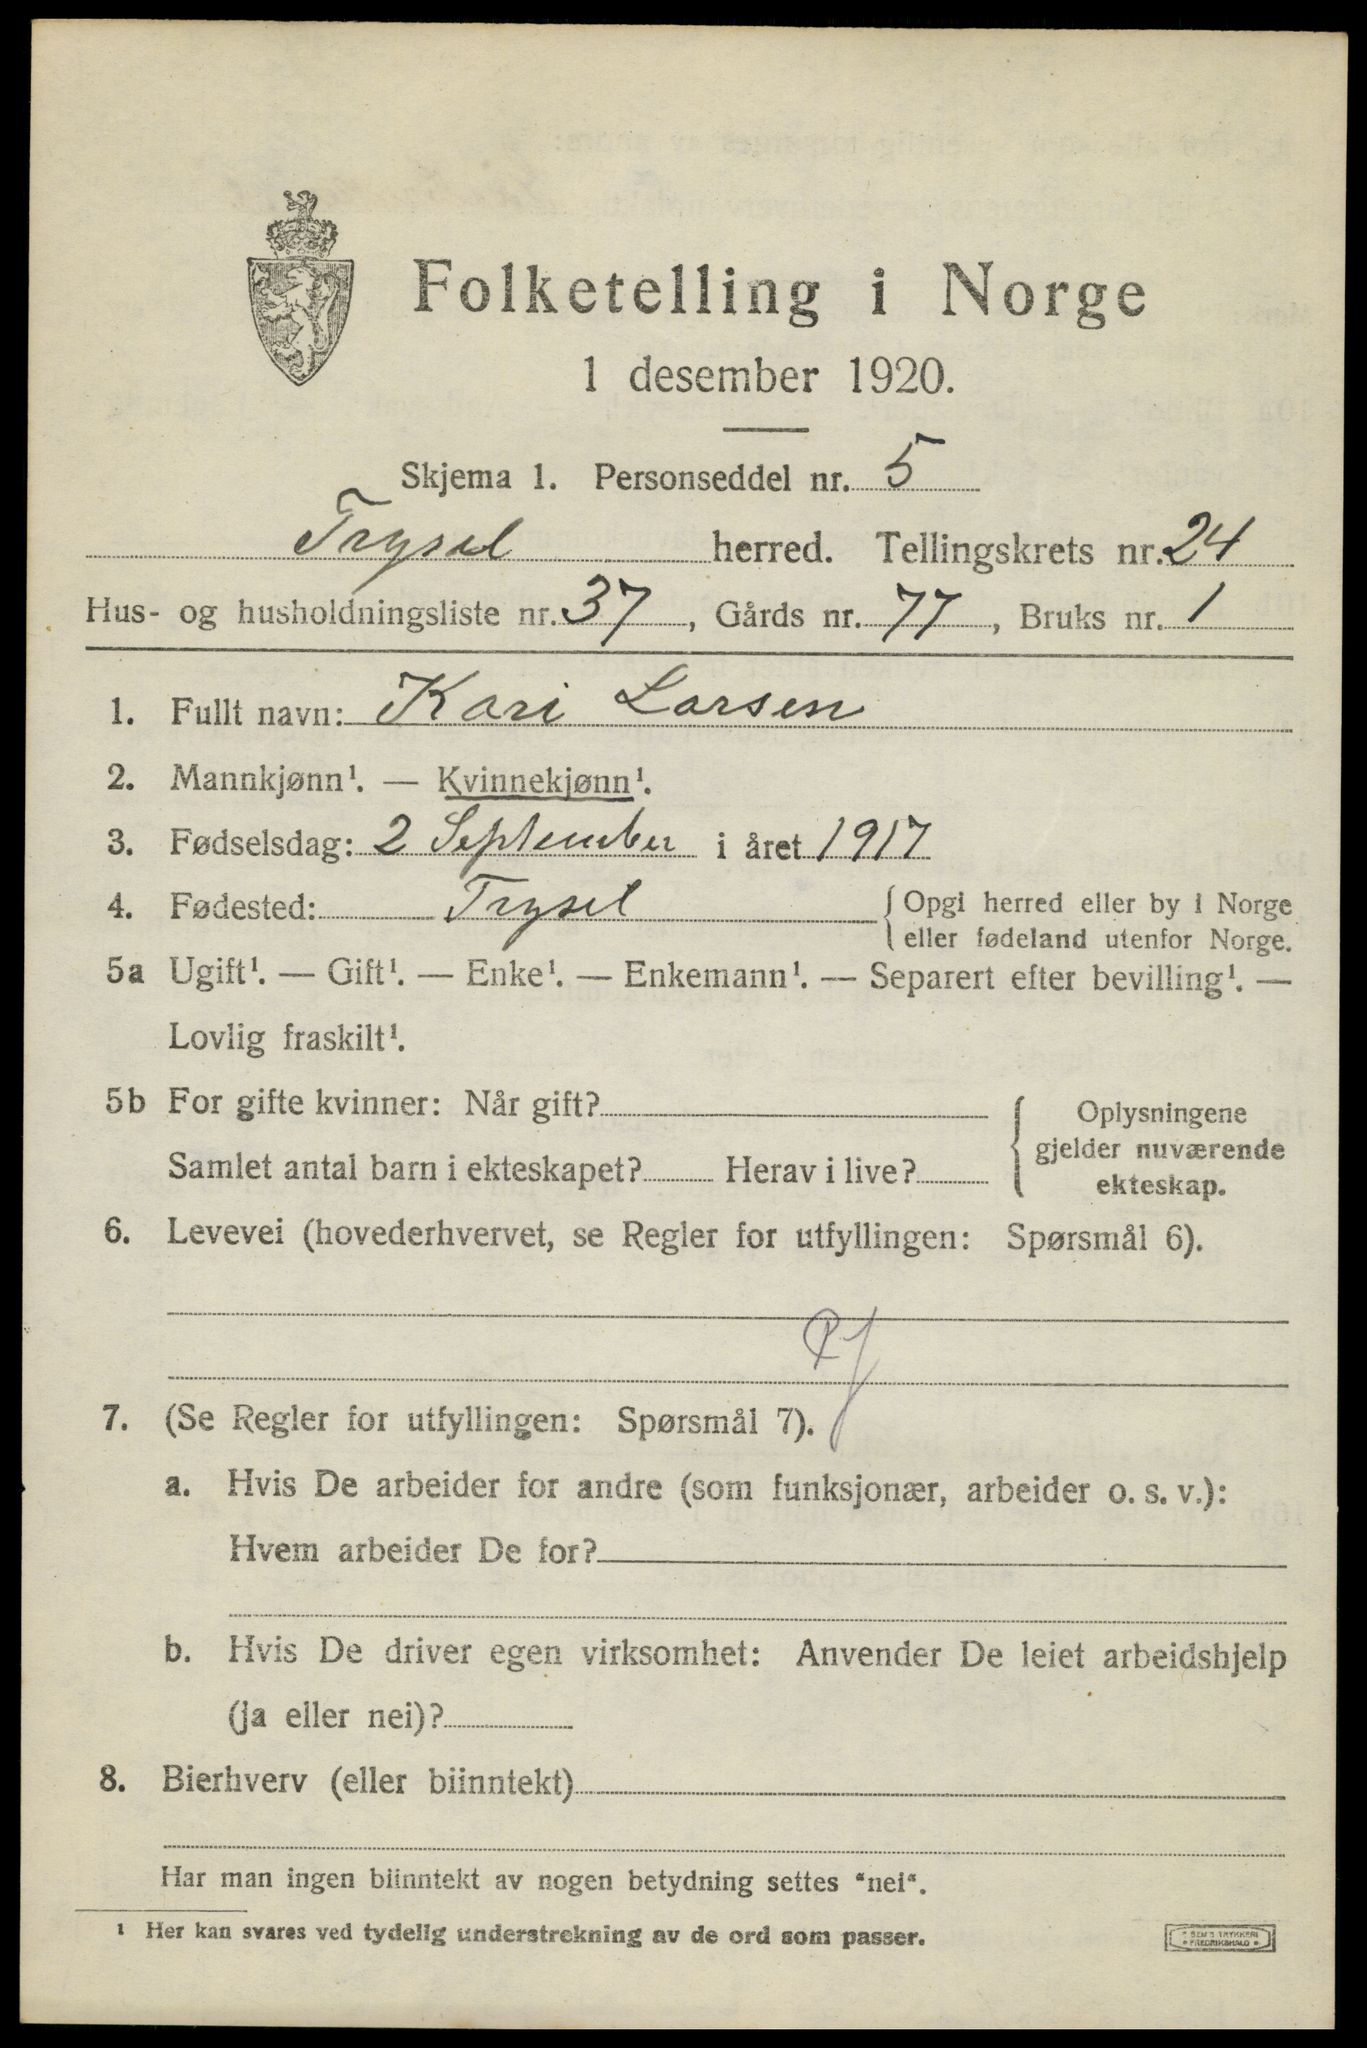 Folketelling i Norge
1 desember 1920.
Skjema 1. Personseddel nr. 5
Trysil herred. Tellingskrets nr. 24
Hus- og husholdningsliste nr. 37, Gårds nr. 77, Bruks nr. 1
1. Fullt navn: Kari Larsen
2. Mannkjønn¹. — Kvinnekjønn¹.
3. Fødselsdag: 2 September i året 1917
4. Fødested: Trysil { Opgi herred eller by i Norge
eller fødeland utenfor Norge.
5a Ugift¹. — Gift¹. — Enke¹. — Enkemann¹. — Separert efter bevilling¹. —
Lovlig fraskilt¹.
5b For gifte kvinner: Når gift?
Samlet antal barn i ekteskapet? Herav i live?
{ Oplysningene
gjelder nuværende
ekteskap.
6. Levevei (hovederhvervet, se Regler for utfyllingen: Spørsmål 6).
7. (Se Regler for utfyllingen: Spørsmål 7).
a. Hvis De arbeider for andre (som funksjonær, arbeider o. s. v.):
Hvem arbeider De for?
b. Hvis De driver egen virksomhet: Anvender De leiet arbeidshjelp
(ja eller nei)?
8. Bierhverv (eller biinntekt)
Har man ingen biinntekt av nogen betydning settes "nei".
¹ Her kan svares ved tydelig understrekning av de ord som passer.
SEM'S TRYKKERI
FREDRIKSHALD